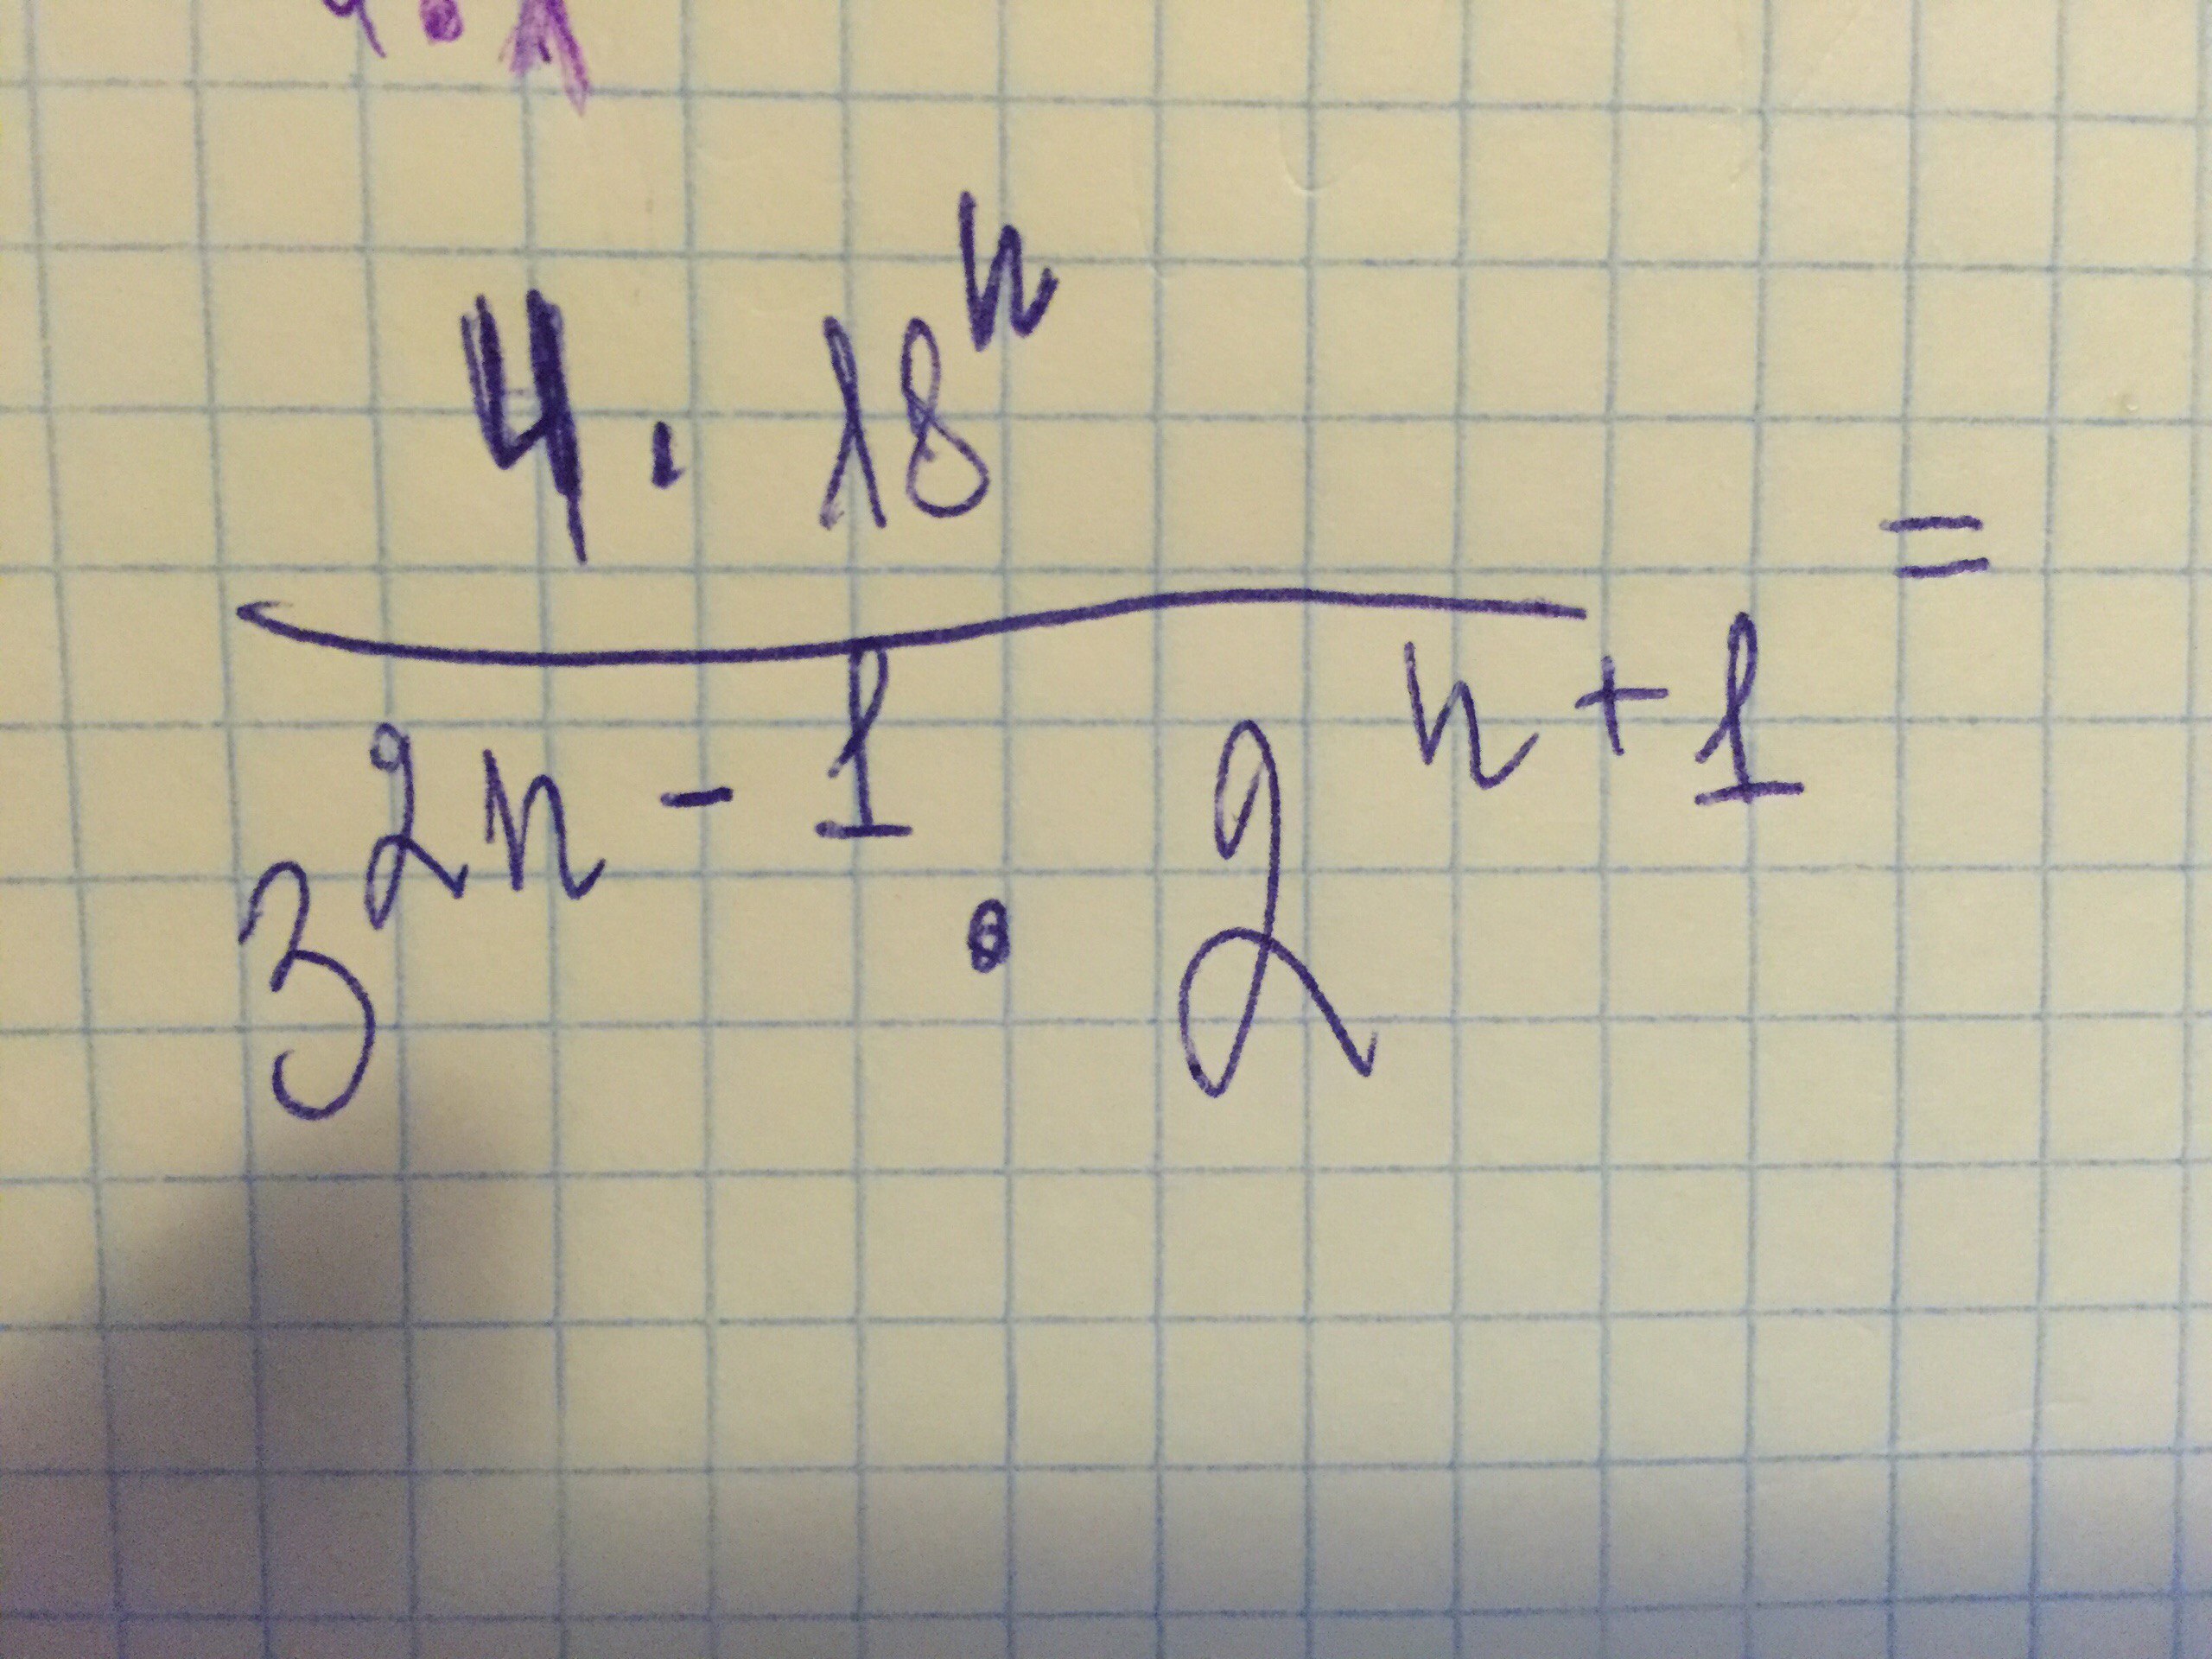 4 · 18^n
3^{2n-1} · 2^{n+1} =